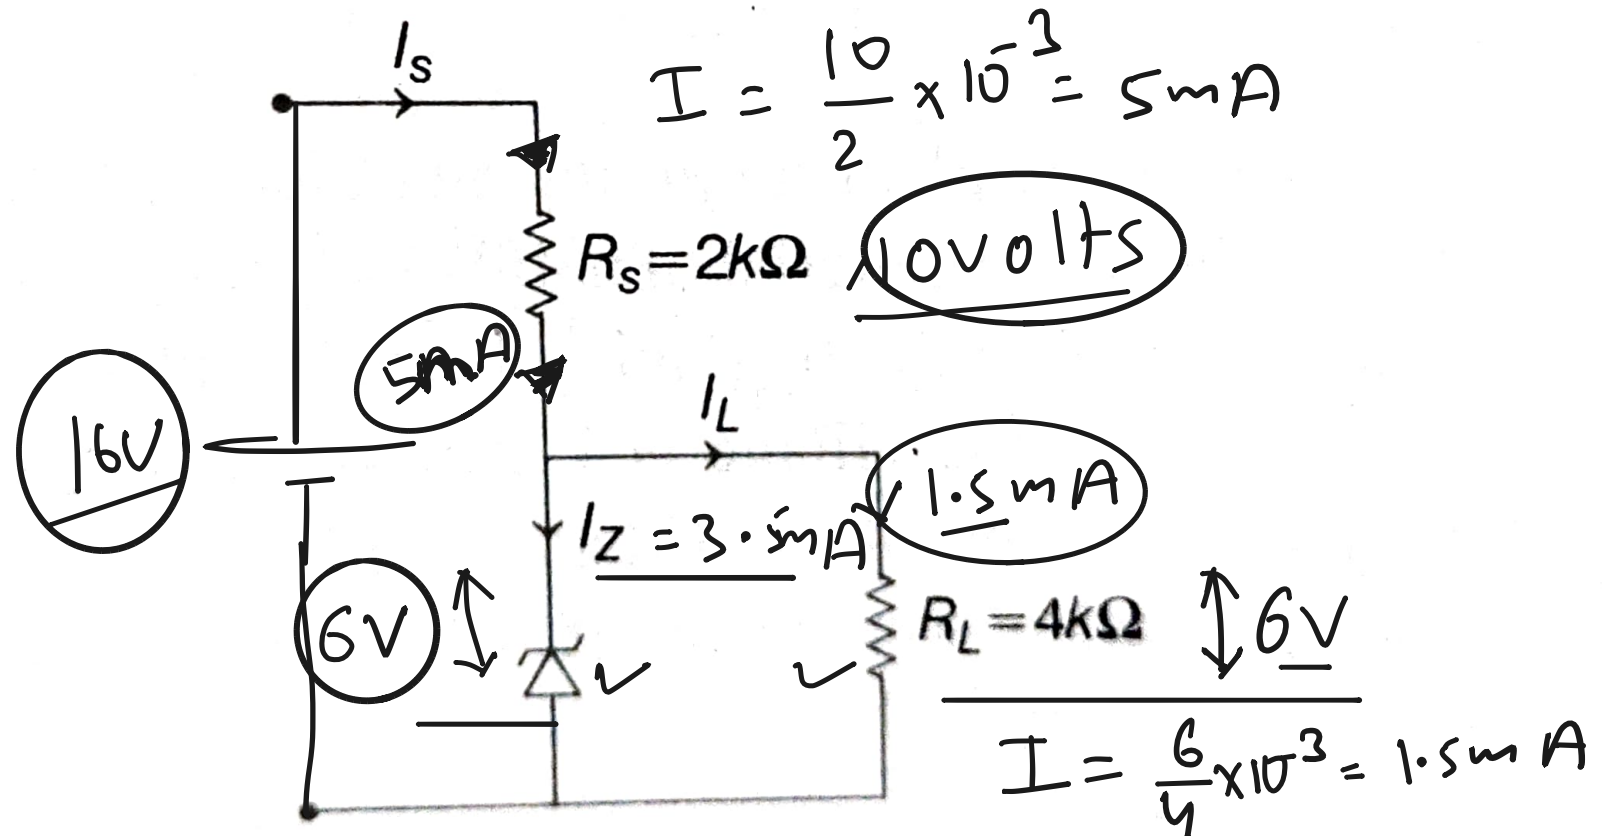 I_S
I = 10/2 × 10⁻³ = 5mA
R_S=2kΩ
10volts
5mA
16V
I_L
1.5mA
I_Z = 3.5mA
6V
R_L=4kΩ
6V
I = 6/4 × 10⁻³ = 1.5mA